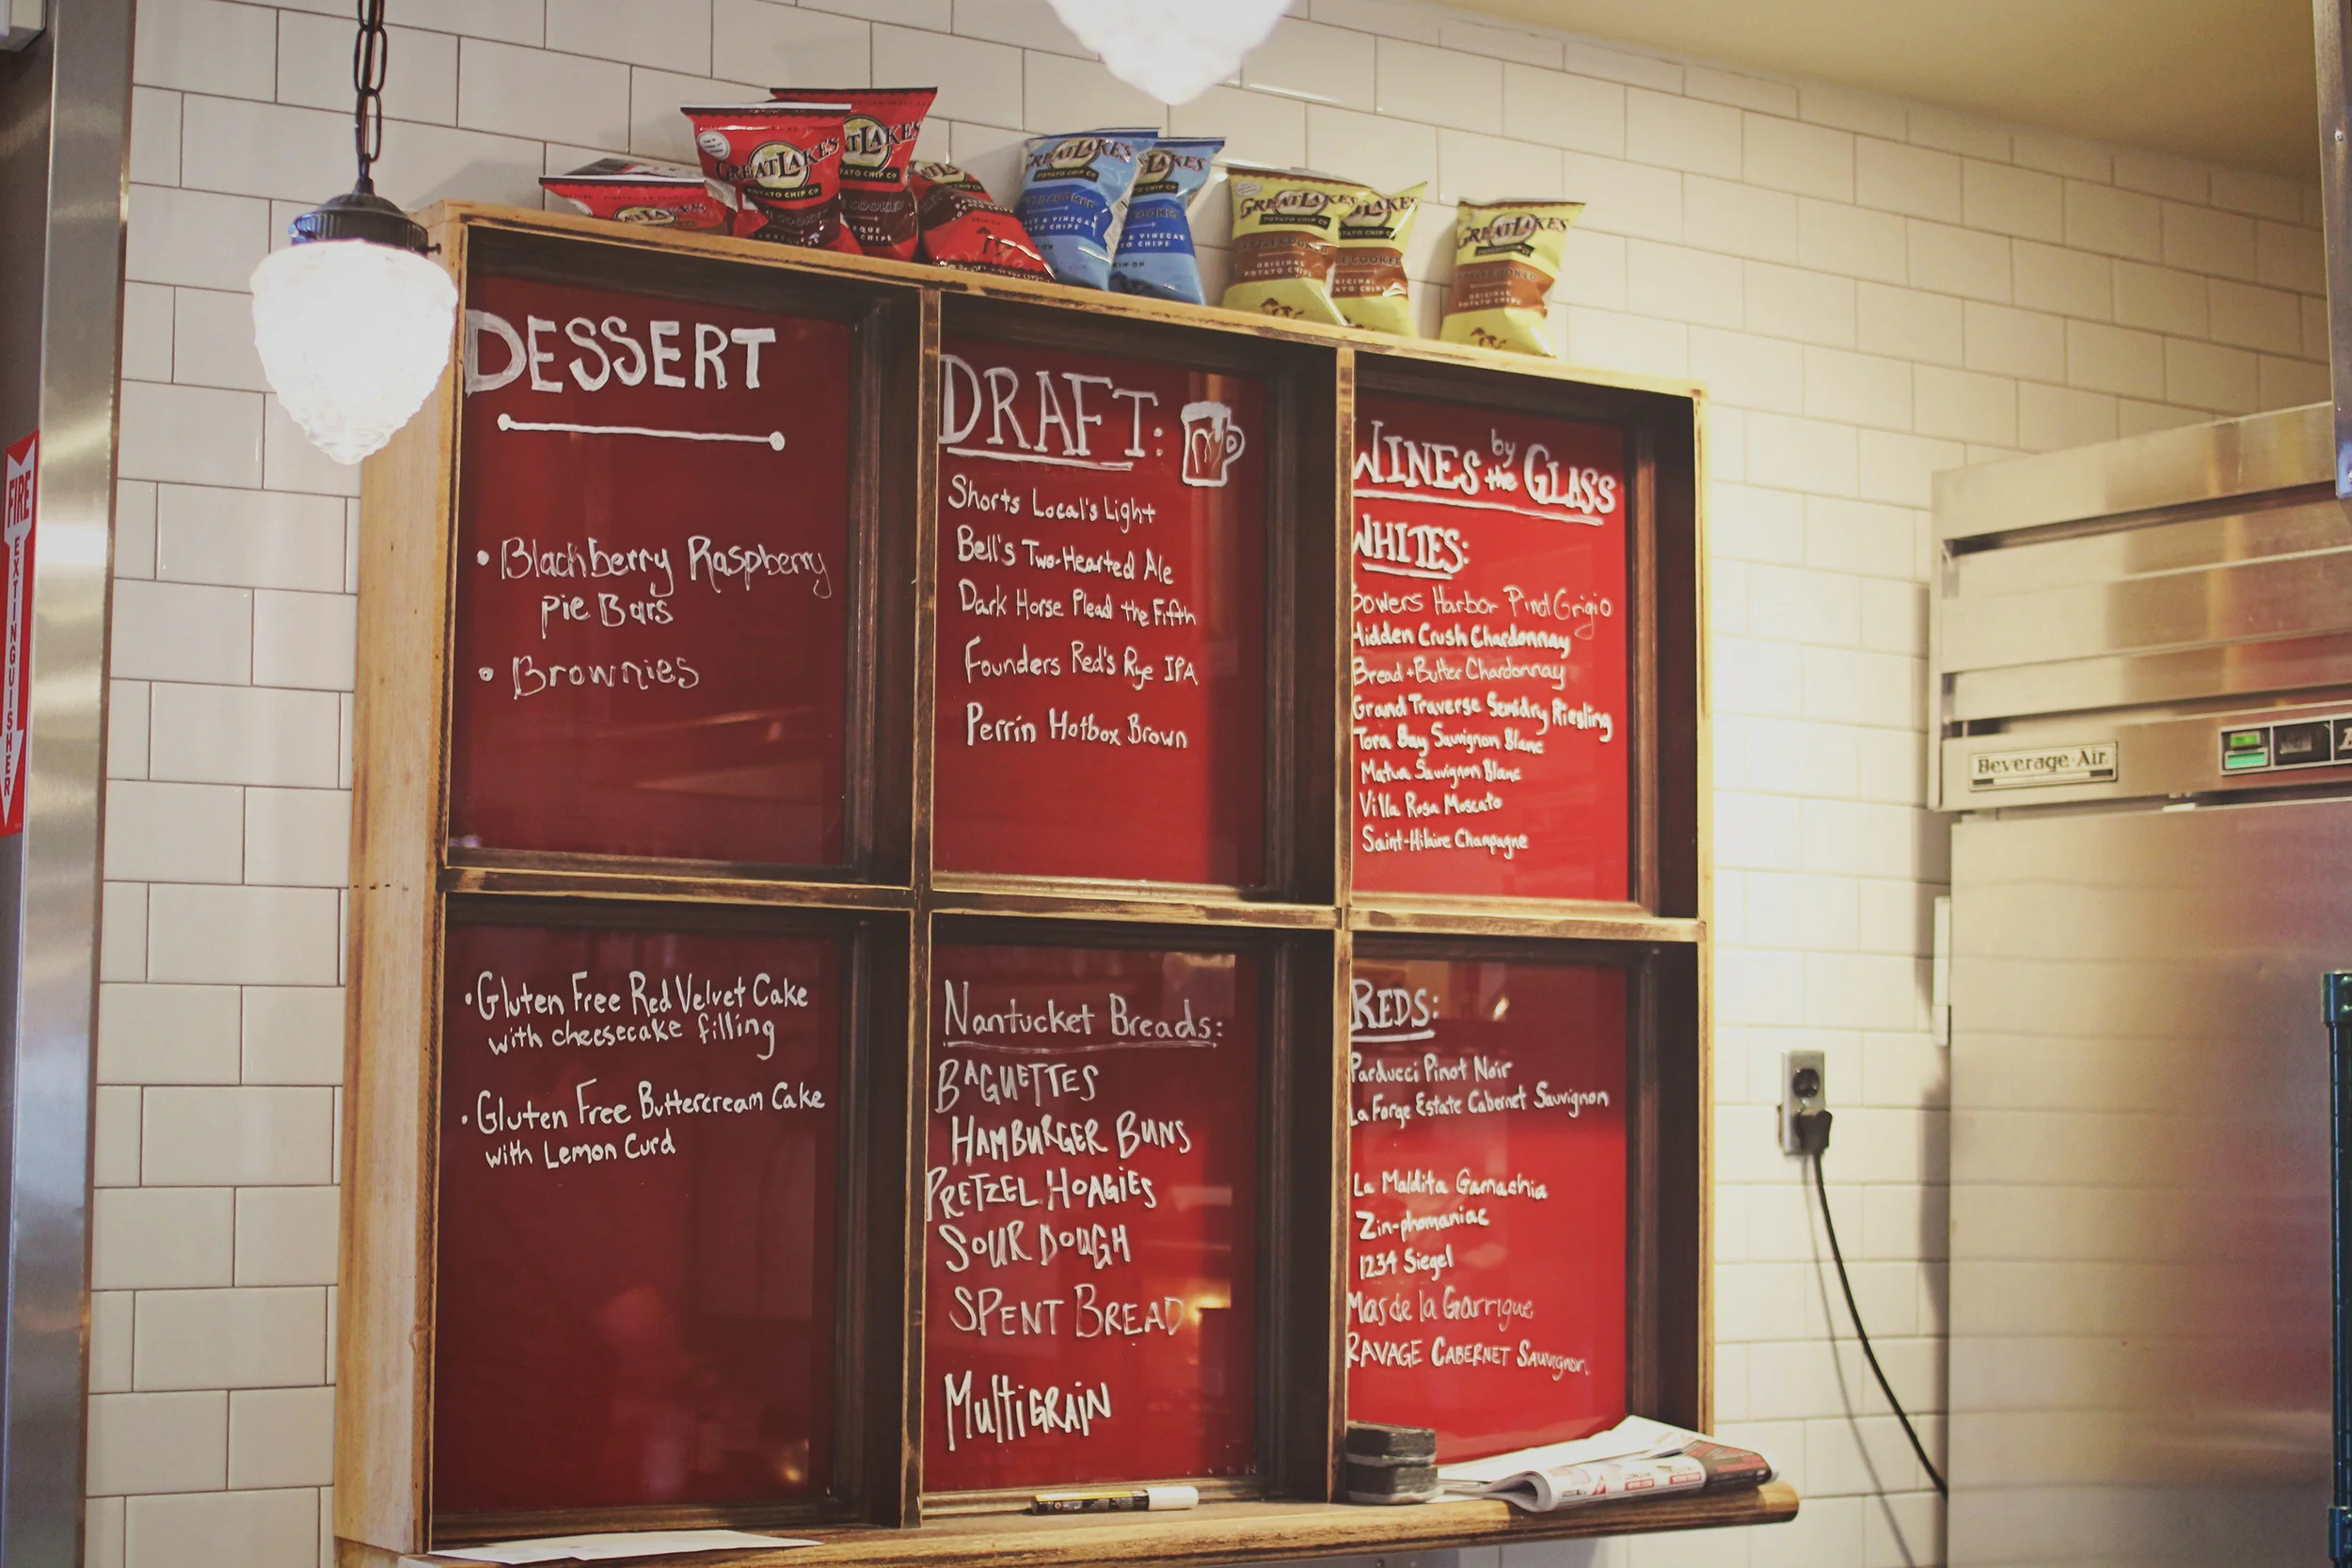 FIRE
EXTINGUISHER
GREAT LAKES
POTATO CHIP CO
GREAT LAKES
ORIGINAL
POTATO CHIPS
DESSERT
• Blackberry Raspberry
pie Bars
• Brownies
• Gluten Free Red Velvet Cake
with cheesecake filling
• Gluten Free Buttercream Cake
with Lemon Curd
DRAFT:
Shorts Local's Light
Bell's Two-Hearted Ale
Dark Horse Plead the Fifth
Founders Red's Rye IPA
Perrin Hotbox Brown
Nantucket Breads:
BAGUETTES
HAMBURGER BUNS
PRETZEL HOAGIES
SOUR DOUGH
SPENT BREAD
MultiGRAIN
WINES by the GLASS
WHITES:
Bowers Harbor Pinot Grigio
Hidden Crush Chardonnay
Bread + Butter Chardonnay
Grand Traverse Semidry Riesling
Tora Bay Sauvignon Blanc
Matua Sauvignon Blanc
Villa Rosa Moscato
Saint-Hilaire Champagne
REDS:
Parducci Pinot Noir
La Forge Estate Cabernet Sauvignon
La Maldita Garnachia
Zin-phomaniac
1234 Siegel
Mas de la Garrigue
RAVAGE CABERNET SAuvignon
Beverage-Air